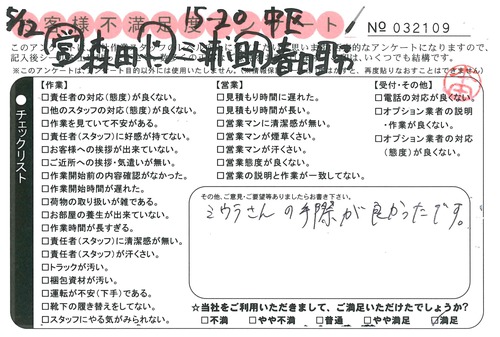 5/12 15-20 中区
お客様不満足度アンケート
No 032109
チェックリスト
【作業】
□責任者の対応(態度)が良くない。
□他のスタッフの対応(態度)が良くない。
□作業を見ていて不安がある。
□責任者(スタッフ)に好感が持てない。
□お客様への挨拶が出来ていない。
□ご近所への挨拶・気遣いが無い。
□作業開始前の内容確認がなかった。
□作業開始時間が遅れた。
□荷物の取り扱いが雑である。
□お部屋の養生が出来ていない。
□作業時間が長すぎる。
□責任者(スタッフ)に清潔感が無い。
□責任者(スタッフ)が汗くさい。
□トラックが汚い。
□梱包資材が汚い。
□運転が不安(下手)である。
□靴下の履き替えをしてない。
□スタッフにやる気がみられない。
【営業】
□見積もり時間に遅れた。
□見積もり時間が長い。
□営業マンに清潔感が無い。
□営業マンが煙草くさい。
□営業マンが汗くさい。
□営業態度が良くない。
□営業の説明と作業が一致してない。
【受付・その他】
□電話の対応が良くない。
□オプション業者の説明
・作業が良くない。
□オプション業者の対応
(態度)が良くない。
その他、ご意見・ご要望等ありましたらお書き下さい。
ミウラさんの手際が良かったです。
☆当社をご利用いただきまして、ご満足いただけたでしょうか?
□不満 □やや不満 □普通 □やや満足 ☑満足